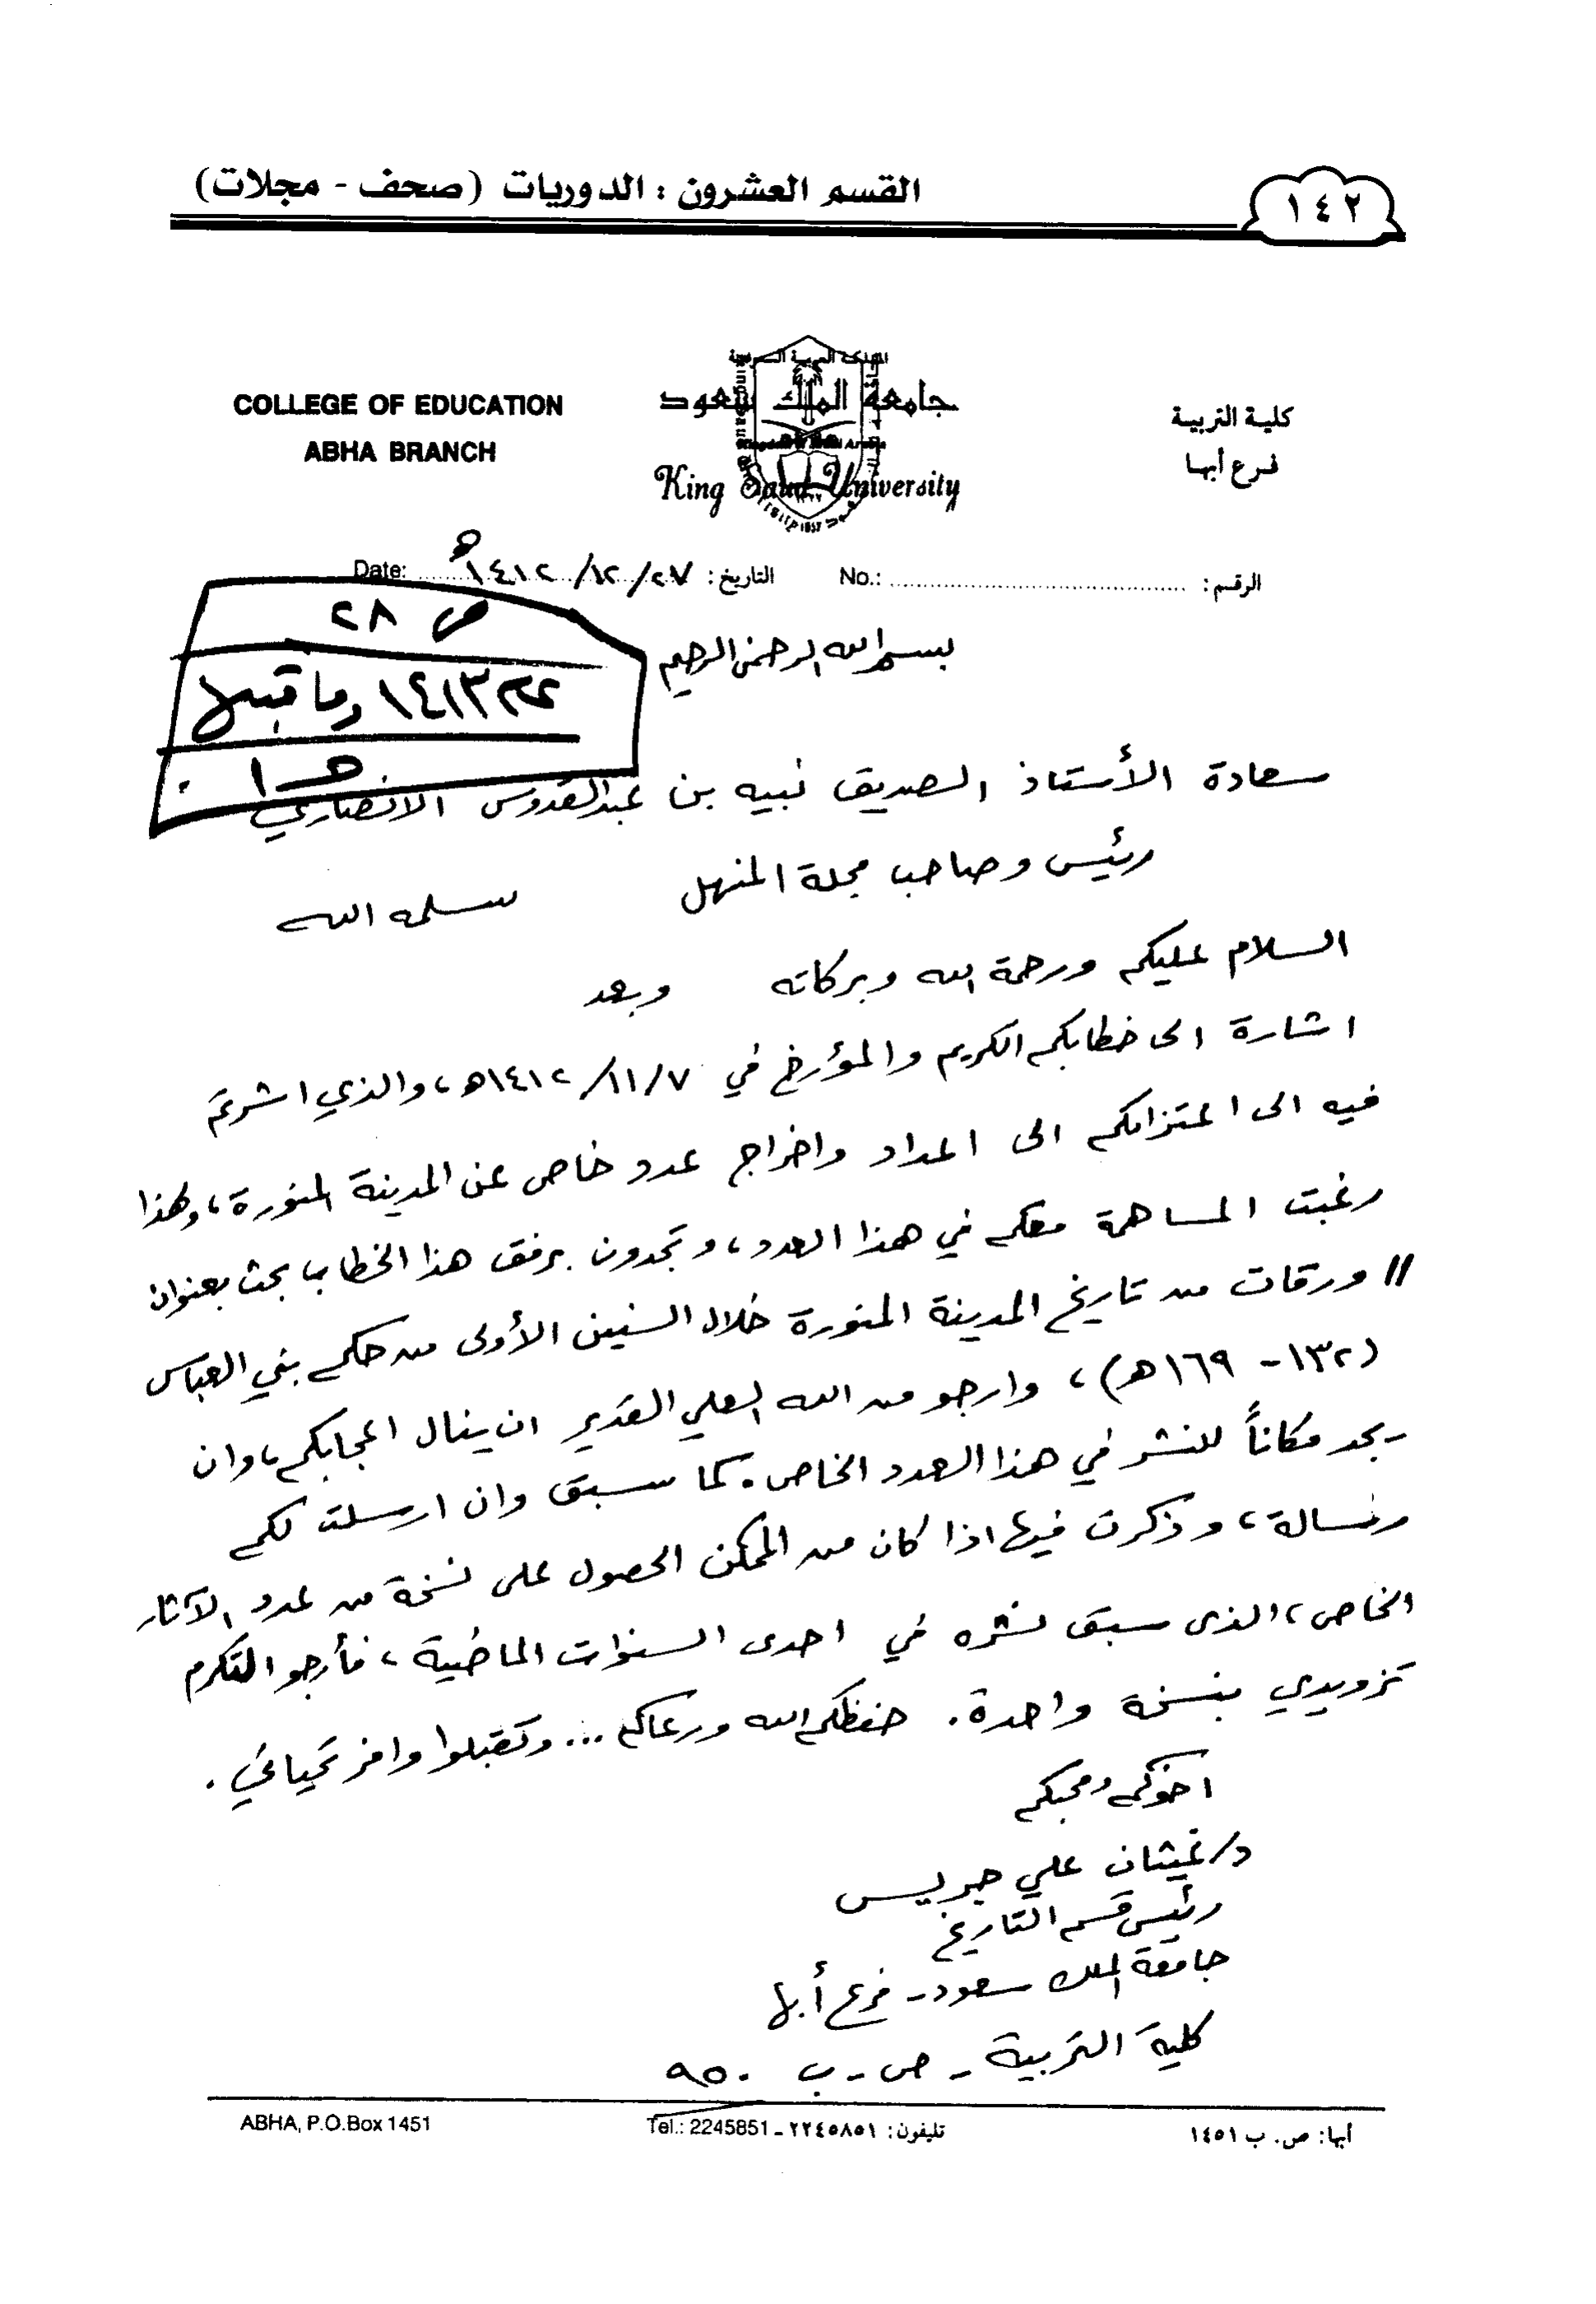 ١٤٢
القسم العشرون : الدوريات (صحف - مجلات)
COLLEGE OF EDUCATION
ABHA BRANCH
المملكة العربية السعودية
جامعة الملك سعود
King Saud University
كلية التربية
فرع أبها
الرقم: No.:
التاريخ: ١٤١٢/١٢/٢٧هـ Date:
ص ٢٨
١٤١٣ وما قبلها
بسم الله الرحمن الرحيم
سعادة الأستاذ الصديق نبيه بن عبدالقدوس الانصاري
رئيس وصاحب مجلة المنهل سلمه الله
السلام عليكم ورحمة الله وبركاته وبعد
اشارة الى خطابكم الكريم والمؤرخ في ١٤١٢/١١/٧هـ، والذي اشرتم
فيه الى اعتزامكم الى اعداد واخراج عدد خاص عن المدينة المنورة، ولهذا
رغبت المساهمة معكم في هذا العدد، وتجدون برفق هذا الخطاب بحث بعنوان
// ورقات من تاريخ المدينة المنورة خلال السنين الأولى من حكم بني العباس
(١٣٢ - ١٦٩هـ)، وارجو من الله العلي القدير ان ينال اعجابكم، وان
يجد مكاناً للنشر في هذا العدد الخاص. كما سبق وان ارسلت لكم
رسالة، وذكرت فيها اذا كان من الممكن الحصول على نسخة من عدد الآثار
الخاص، الذى سبق نشره في احدى السنوات الماضية، فأرجو التكرم
تزويدي بنسخة واحدة. حفظكم الله ورعاكم ... وتقبلوا وافر تحياتي.
اخوكم ومحبكم
د/ غيثان علي جريس
رئيس قسم التاريخ
جامعة الملك سعود - فرع أبها
كلية التربية - ص - ب ٩٥٠
أبها: ص. ب ١٤٥١
تليفون: ٢٢٤٥٨٥١ - Tel.: 2245851
ABHA, P.O.Box 1451